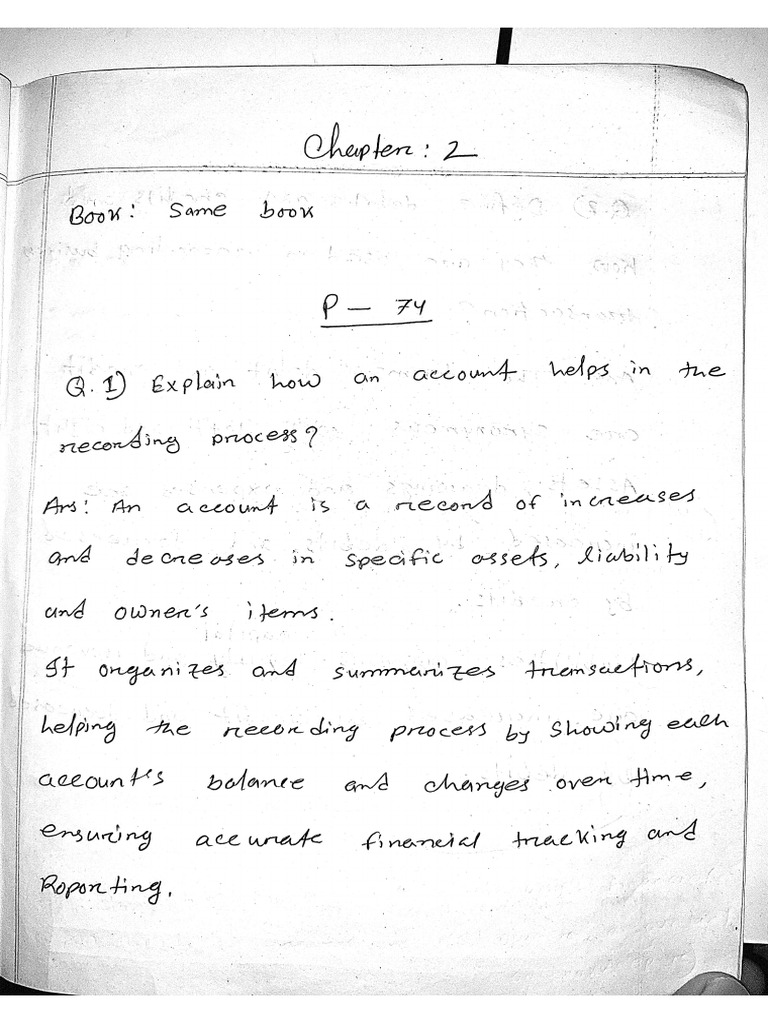 Chapter: 2
Book: Same book
P — 74
Q.1) Explain how an account helps in the
recording process?
Ans: An account is a record of increases
and decreases in specific assets, liability
and owner's items.
It organizes and summarizes transactions,
helping the recording process by showing each
account's balance and changes over time,
ensuring accurate financial tracking and
Roporting.